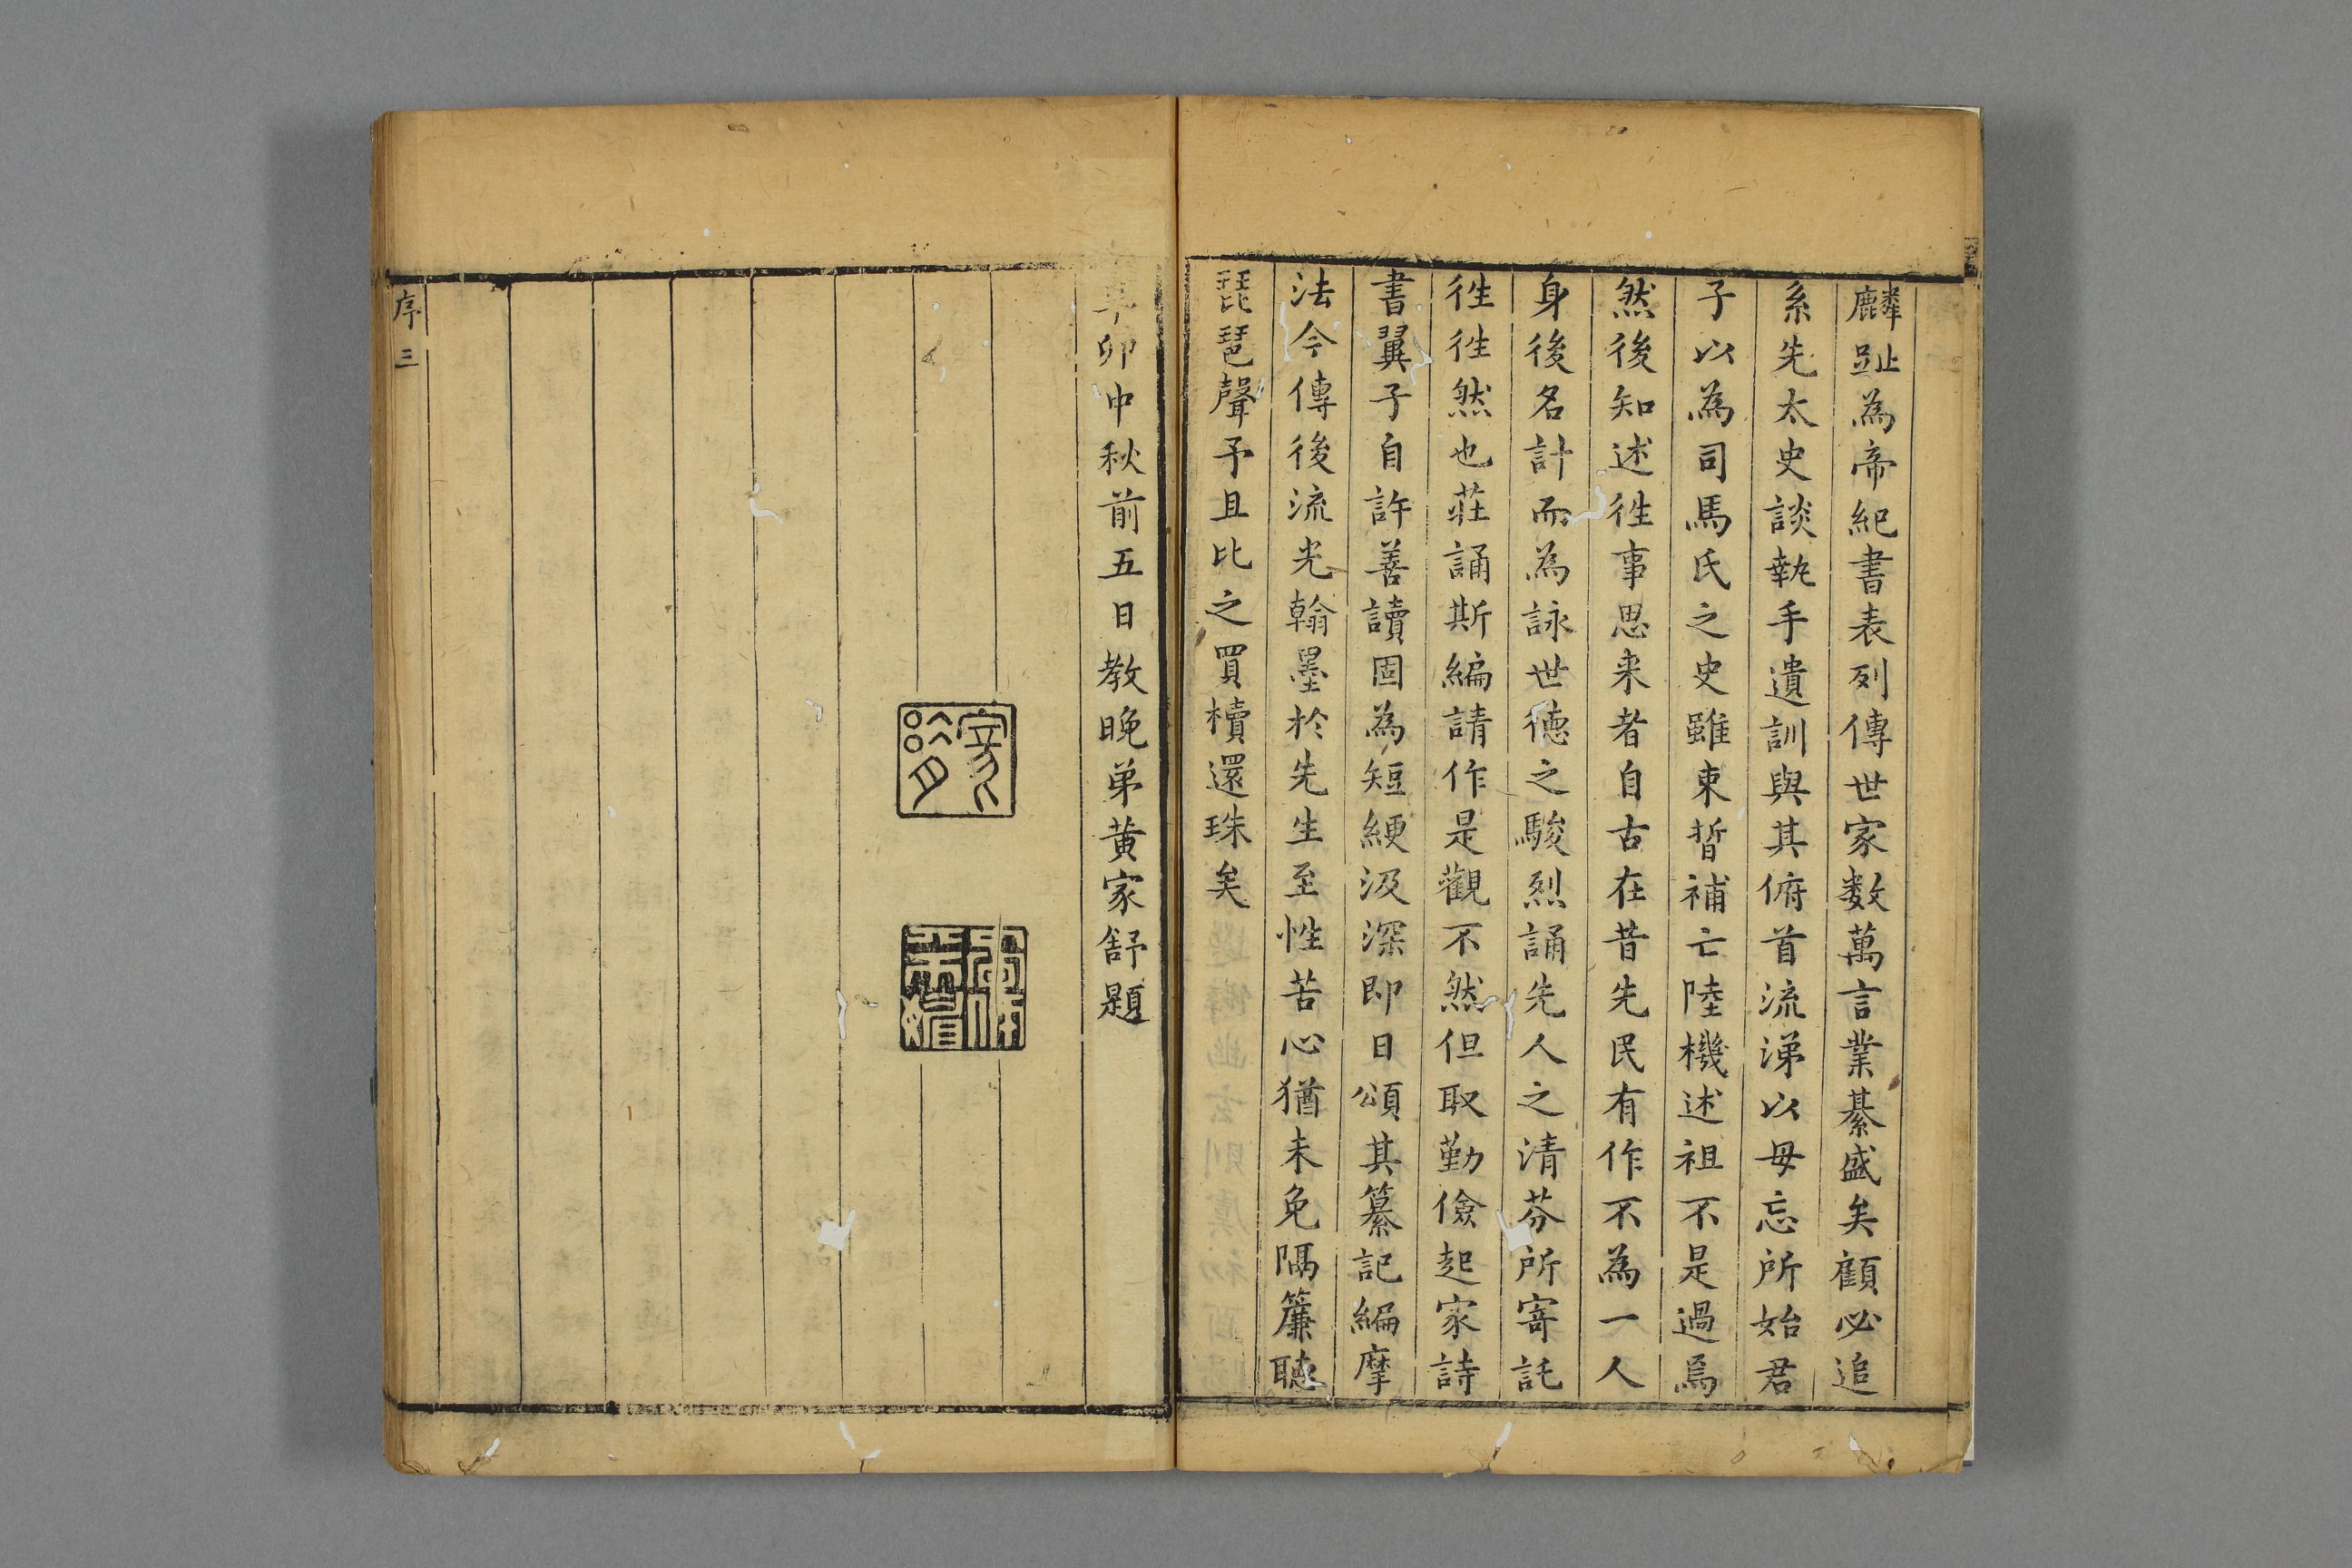 麟趾為帝紀書表列傳世家数萬言業綦盛矣顧必追
系先太史談執手遺訓與其俯首流涕以毋忘所始君
子以為司馬氏之史雖束晳補亡陸機述祖不是過焉
然後知述徃事思来者自古在昔先民有作不為一人
身後名計而為詠世德之駿烈誦先人之清芬所寄託
徃徃然也莊誦斯編請作是觀不然但取勤儉起家詩
書翼子自許善讀固為短綆汲深即日頌其纂記編摩
法今傳後流光翰墨於先生至性苦心猶未免隔簾聽
琵琶聲予且比之買櫝還珠矣
辛卯中秋前五日教晚弟黄家舒題
序
三